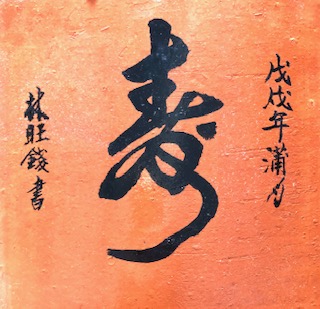 戊戌年蒲月
寿
林旺錢書